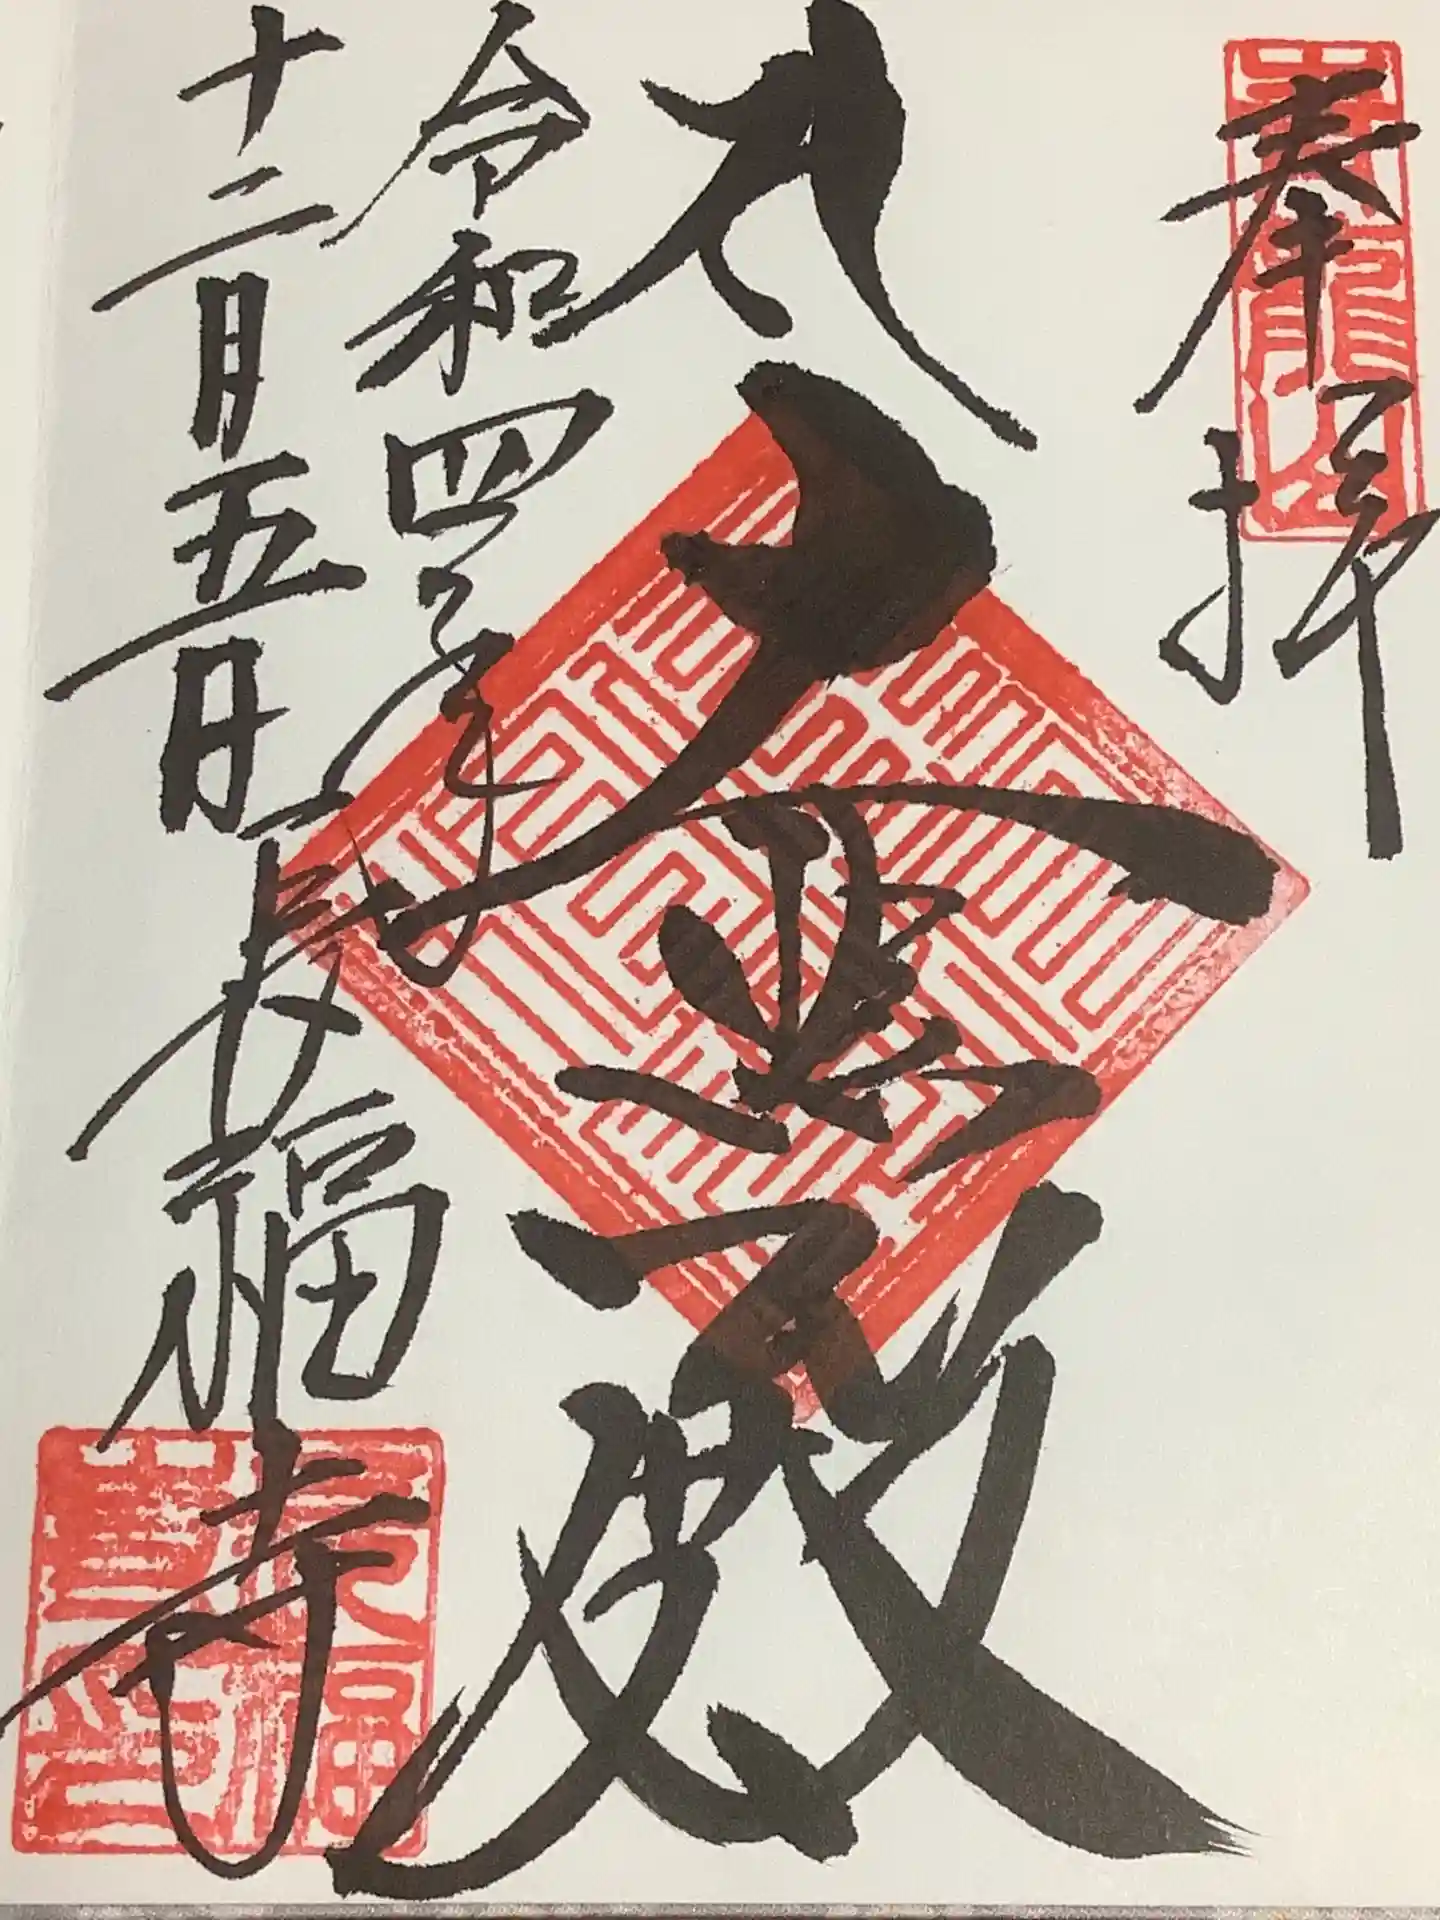 奉拝
大悲殿
令和四年
十二月五日
長福寺